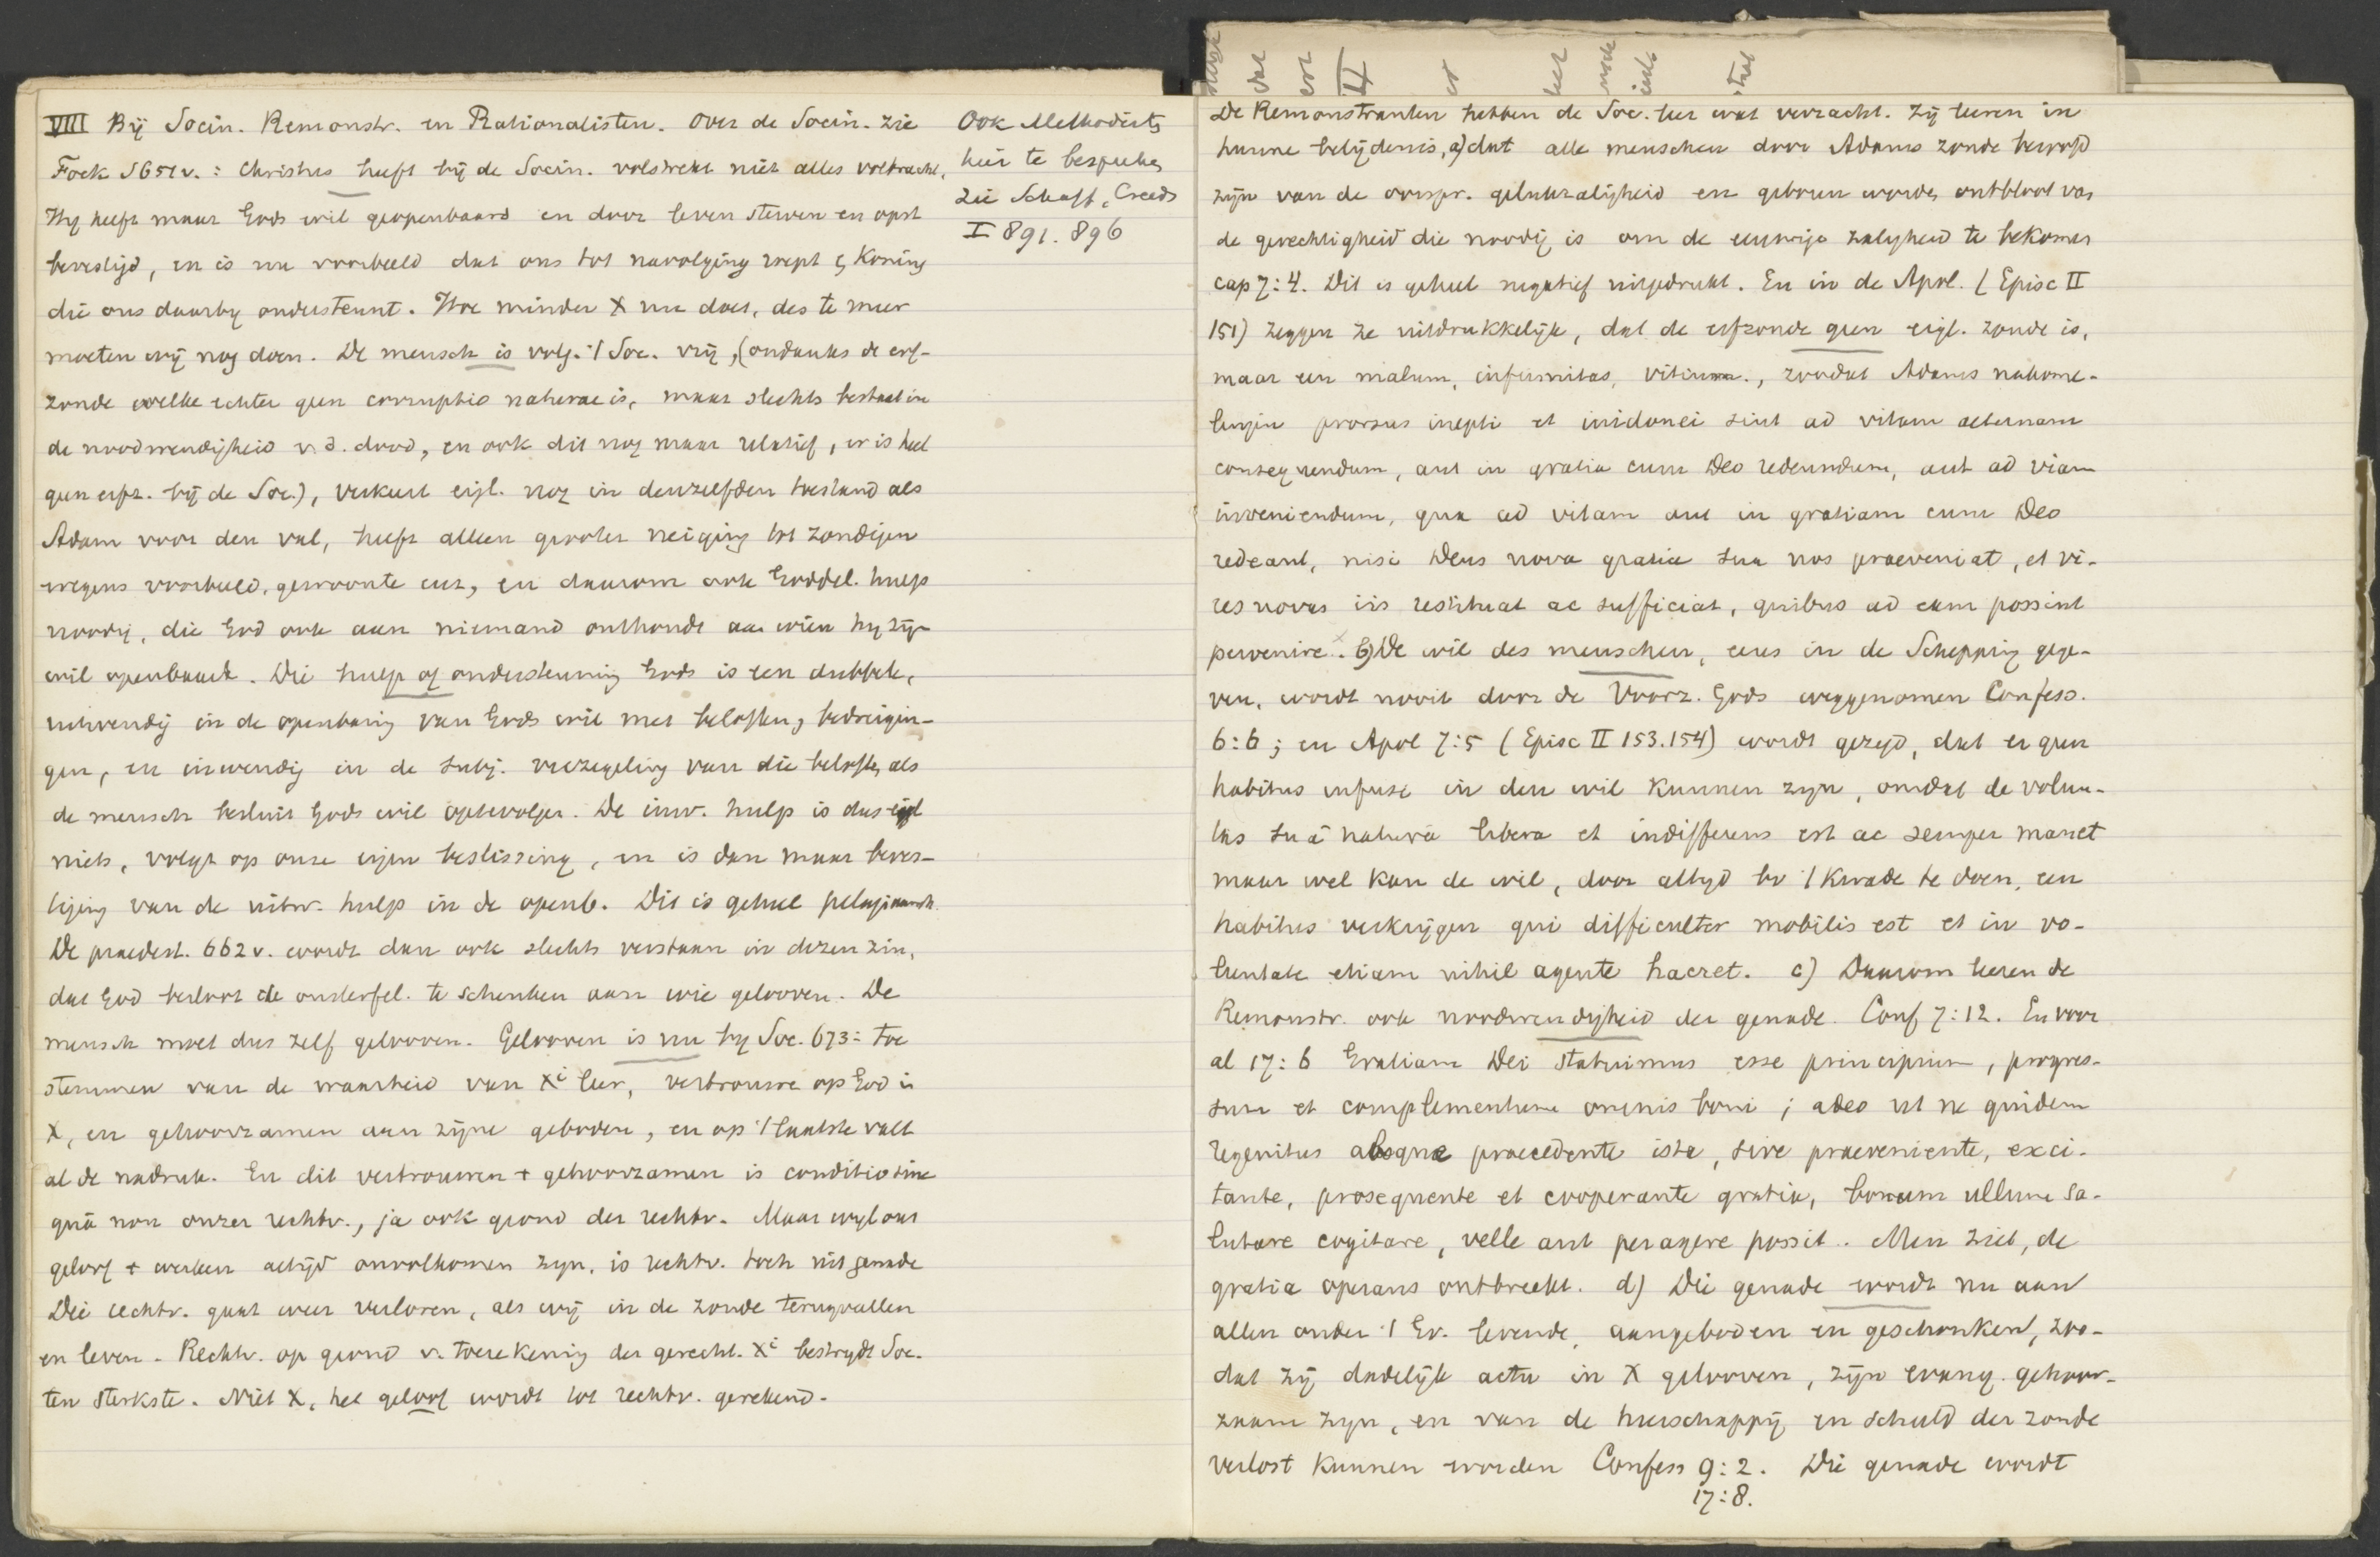 VIII Bij Socin. Remonstr. en Rationalisten. Over de Socin. zie
Fock S651v.: Christus heeft bij de Socin. volstrekt niet alles volbracht,
Hij heeft maar Gods wil geopenbaard en door leven sterven en opst
bevestigd, en is nu voorbeeld dat ons tot navolging roept & Koning
die ons daarbij ondersteunt. Hoe minder X nu doet, des te meer
moeten wij nog doen. De mensch is volg. 't Soc. vrij, (ondanks de erf-
zonde welke echter geen corruptio naturae is, maar slechts bestaat in
de noodwendigheid v. d. dood, en ook dit nog maar relatief, er is heel
geen erfz. bij de Soc.), verkeert eigl. nog in denzelfden toestand als
Adam voor den val, heeft alleen grooter neiging tot zondigen
wegens voorbeeld, gewoonte enz, en daarom ook Goddel. hulp
noodig, die God ook aan niemand onthoudt aan wien hij zijn
wil openbaart. Die hulp of ondersteuning Gods is een dubbele,
uitwendig in de openbaring van Gods wil met beloften & bedreigin-
gen, en inwendig in de subj. verzegeling van die beloften, als
de mensch besluit Gods wil optevolgen. De inw. hulp is dus eigl
niets, volgt op onze eigen beslissing, en is dan maar beves-
tiging van de uitw. hulp in de openb. Dit is geheel pelagiaansch
De praedest. 662v. wordt dan ook slechts verstaan in dezen zin,
dat God besloot de onsterfel. te schenken aan wie gelooven. De
mensch moet dus zelf gelooven. Gelooven is nu bij Soc. 673: toe
stemmen van de waarheid van Xi leer, vertrouwe op God in
X, en gehoorzamen aan zijne geboden, en op 't laatste valt
al de nadruk. En dit vertrouwen + gehoorzamen is conditio sine
quâ non onzer rechtv., ja ook grond der rechtv. Maar wijl ons
geloof + werken altijd onvolkomen zijn, is rechtv. toch uit genade
Die rechtv. gaat weer verloren, als wij in de zonde terugvallen
en leven. Rechtv. op grond v. toerekening der gerecht. Xi bestrijdt Soc.
ten sterkste. Niet X, het geloof wordt tot rechtv. gerekend.
Ook Methodists
hier te bespreken
zie Schaff, Creeds
I 891. 896
De Remonstranten hebben de Soc. leer wat verzacht. Zij leeren in
hunne belijdenis, a) dat alle menschen door Adams zonde beroofd
zijn van de oorspr. gelukzaligheid en geboren worden ontbloot van
de gerechtigheid die noodig is om de eeuwige zaligheid te bekomen
cap 7:4. Dit is geheel negatief uitgedrukt. En in de Apol. (Episc II
151) zeggen ze uitdrukkelijk, dat de erfzonde geen eigl. zonde is,
maar een malum, infirmitas, vitium., zoodat Adams nakome-
lingen prorsus inepti et inidonei sint ad vitam aeternam
consequendum, aut in gratia cum Deo redeundum, aut ad viam
inveniendum, qua ad vitam aut in gratiam cum Deo
redeant, nisi Deus nova gratia sua nos praeveniat, et vi-
res novas iis restituat ac sufficiat, quibus ad eam possint
pervenire. b) De wil des menschen, eens in de Schepping gege-
ven, wordt nooit door de Voorz. Gods weggenomen Confess.
6:6; en Apol 7:5 (Episc II 153.154) wordt gezegd, dat er geen
habitus infusi in den wil kunnen zijn, omdat de volun-
tas suâ naturâ libera et indifferens est ac semper manet
maar wel kan de wil, door altijd bv 't kwade te doen, een
habitus verkrijgen qui difficulter mobilis est et in vo-
luntate etiam nihil agente haeret. c) Daarom leeren de
Remonstr. ook noodwendigheid der genade. Conf 7:12. En voor
al 17:6 Gratiam Dei statuimus esse principium, progres-
sum et complementum omnis boni; adeo ut ne quidem
regenitus absque praecedente ista, sive praeveniente, exci-
tante, prosequente et cooperante gratia, bonum ullum sa-
lutare cogitare, velle aut peragere possit. Men ziet, de
gratia operans ontbreekt. d) Die genade wordt nu aan
allen onder 't Ev. levende, aangeboden en geschonken, zoo-
dat zij dadelijk actu in X gelooven, zijn evang. gehoor-
zaam zijn, en van de heerschappij en schuld der zonde
verlost kunnen worden Confess 9:2. Die genade wordt
17:8.